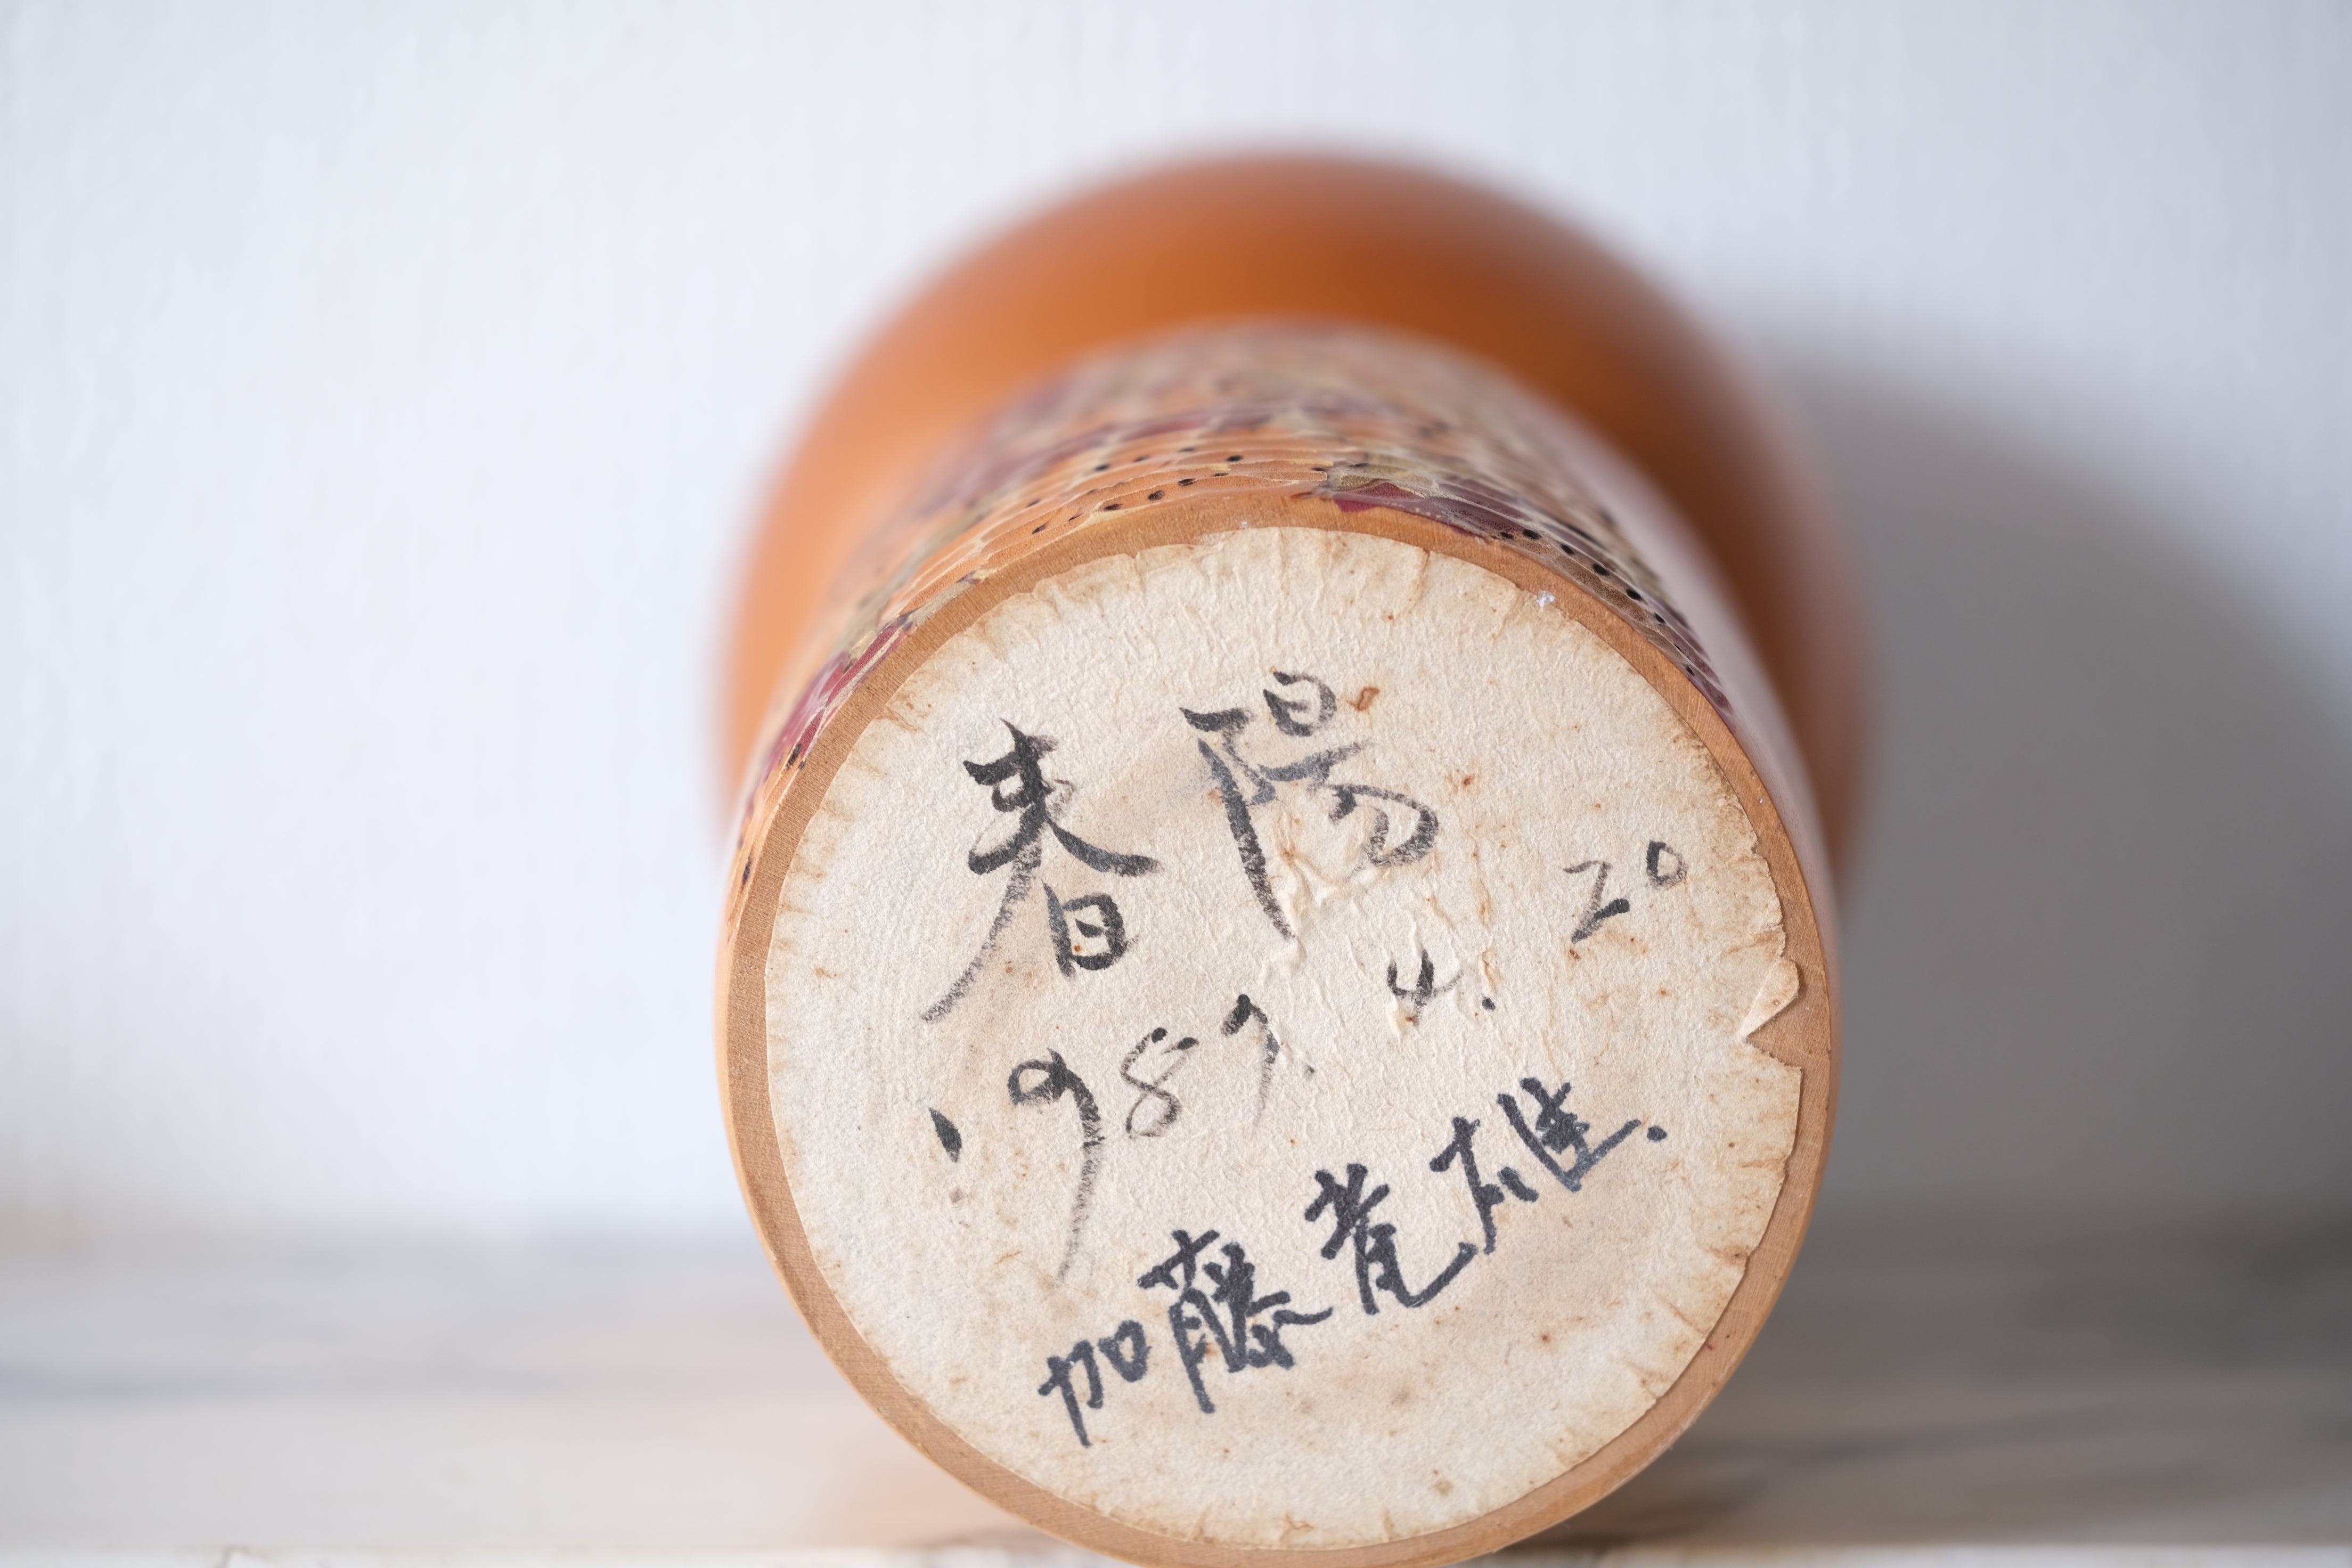 春陽
1987. 4. 20
加藤 雄.